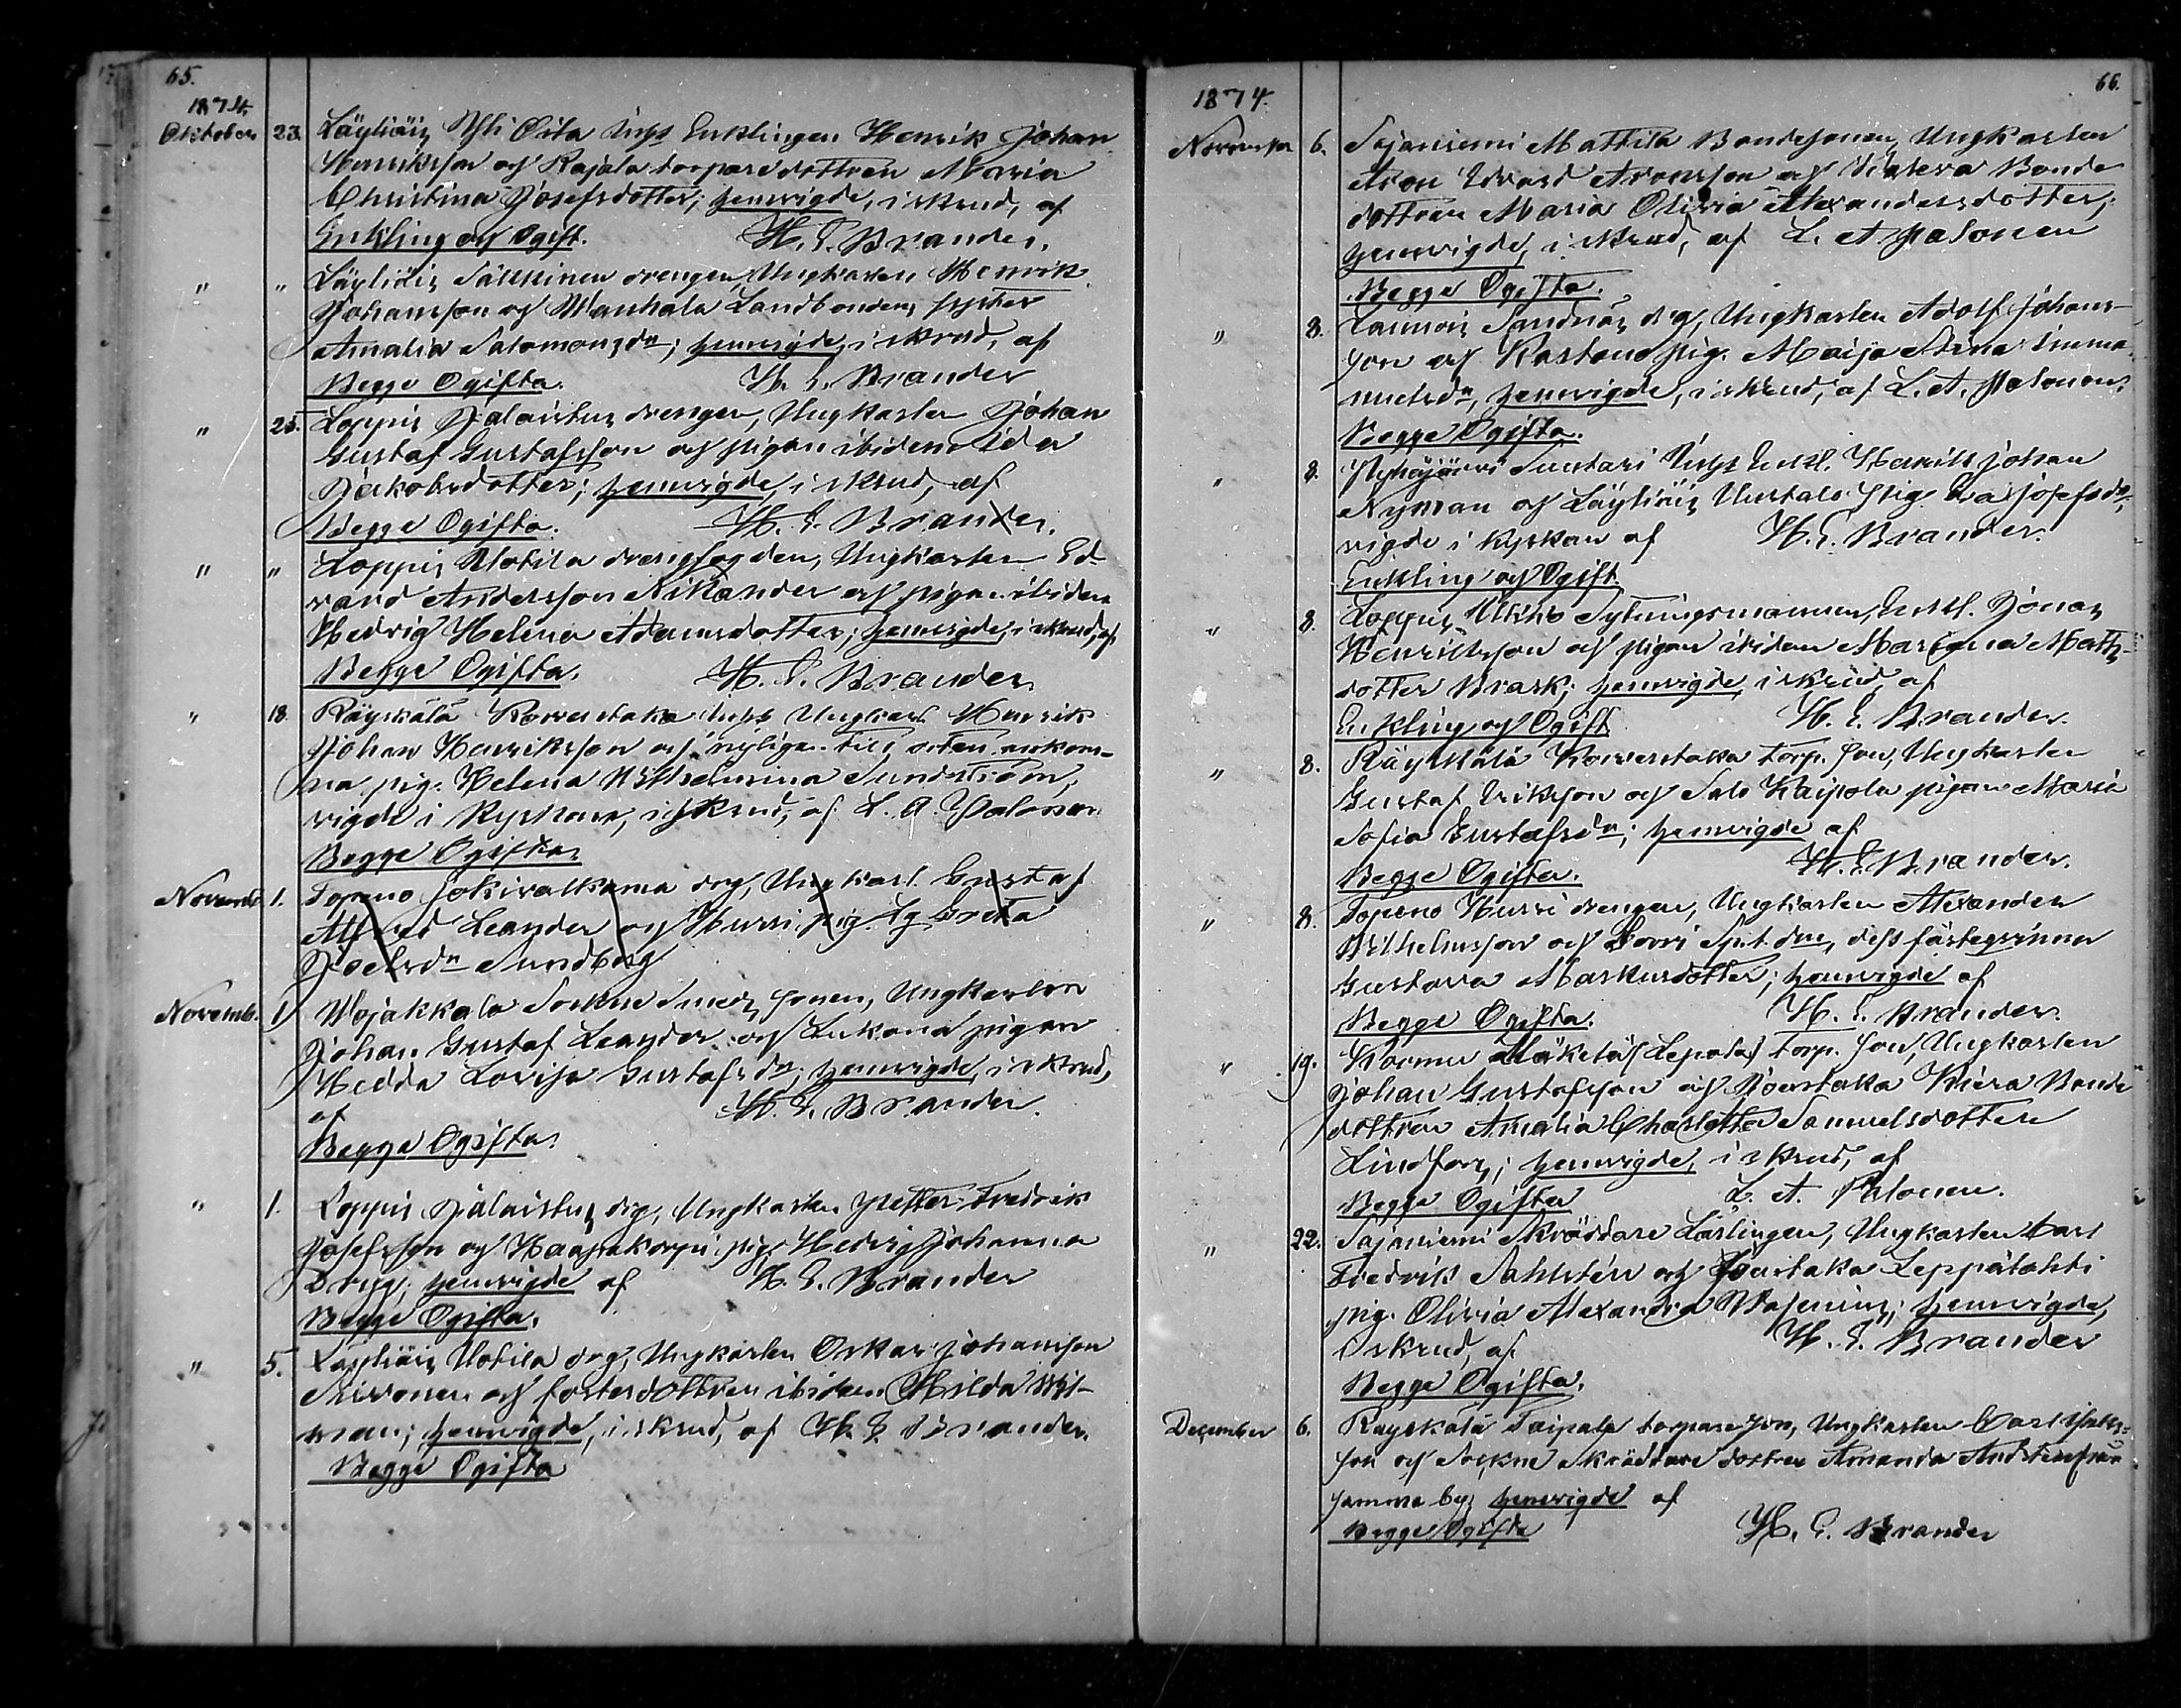 65.
1874.
Oktober 23. Läyliäis Yli Orta Inhs Enklingen Henrik Johan
Henriksson och Rajala torpare dottren Maria
Christina Josefsdotter; hemvigde, i skrud, af
Enkling och Ogift. H. E. Brander.
" " Läyliäis Säkkinen drengen, Ungkarlen Henrik
Johansson och Manhala Landbondens syster
Amalia Salomonsdr; hemvigde, i skrud, af
Begge Ogifta. H. E. Brander
" 25. Loppis Jalaistus drengen, Ungkarlen Johan
Gustaf Gustafsson och pigan ibidem Ida
Jakobsdotter; hemvigde, i skrud, af
Begge Ogifta. H. E. Brander.
" " Loppis Uotila drengfogden, Ungkarlen Ed-
vard Andersson Nikander och pigan ibidem
Hedvig Helena Adamsdotter; hemvigde, i skrud, af
Begge Ogifta. H. E. Brander
" 18. Räyskälä Kovenstaka Inhs Ungkarl Henrik
Johan Henriksson och nyligen till orten ankom-
na pig. Helena Wilhelmina Sundström,
vigde i Kyrkan, i skrud, af L. A. Palonen
Begge Ogifta.
Novemb. 1. Topeno Jokivalkama drg, Ungkarl. Gustaf
Alfred Leander och Hursi pig. Greta
Joelsdr Sundberg
Novemb. 1 Wojakkala Sockne Smeds sonen, Ungkarlen
Johan Gustaf Leander och Lukana pigan
Hedda Lovisa Gustafsdr; hemvigde, i skrud,
af H. E. Brander.
Begge Ogifta.
" 1. Loppis Jalaistus drg, Ungkarlen Petter Fredrik
Josefsson och Haapakorpi pig. Hedvig Johanna
Drug; hemvigde af H. E. Brander
Begge Ogifta.
" 5. Läyliäis Uotila drg, Ungkarlen Oskar Johansson
Nironen och fosterdottren ibidem Hilda Wil-
man; hemvigde, i skrud, af H. E. Brander.
Begge Ogifta
66.
1874.
November 6. Sajaniemi Mattila Bondesonen, Ungkarlen
Aron Edvard Aronsson och Bonde
dottren Maria Olivia Alexandersdotter;
hemvigde, i skrud, af L. A. Palonen
Begge Ogifta.
" 8. Launois Sandnäs drg, Ungkarlen Adolf Johans-
son och Kastand pig. Maija Stina Imma-
nuelsdr, hemvigde, i skrud, af L. A. Palonen.
Begge Ogifta.
" 8. Pyhäjärvi Suntari Inhs Enkl. Henrik Johan
Nyman och Läyliäis Uustalo pig. Eva Josefsdr,
vigde i kyrkan af H. E. Brander.
Enkling och Ogift.
" 8. Loppis Ukko Sytningsmannen, Enkl. Jonas
Henriksson och pigan ibidem Mariana Matts-
dotter Brask; hemvigde, i skrud, af
Enkling och Ogift H. E. Brander.
" 8. Räyskälä Kovenstaka torp. son, Ungkarlen
Gustaf Eriksson och Salo Kaipola pigan Maria
Sofia Gustafsdr; hemvigde af
Begge Ogifta. H. E. Brander.
" 8. Topeno Hursi drengen, Ungkarlen Alexander
Wilhelmsson och Sorri Spit. dn, dess fästeqvinna
Gustava Markusdotter; hemvigde af
Begge Ogifta. H. E. Brander.
" 19. Kormu Mäkelä (Lepola) torp. son, Ungkarlen
Johan Gustafsson och Joentaka Knera Bonde
dottren Amalia Charlotta Samuelsdotter
Lindfors; hemvigde, i skrud, af
Begge Ogifta L. A. Palonen.
" 22. Sajaniemi Skräddare Lärlingen, Ungkarlen Carl
Fredrik Sahlstén och Joentaka Leppälahti
pig. Olivia Alexandra Wasenius; hemvigde,
i skrud, af H. E. Brander
Begge Ogifta.
December 6. Räyskälä Taipale torpareson, Ungkarlen Carl
son och Sockne Skräddare dottren Amanda Andstén från
samma by; hemvigde af
Begge Ogifta H. E. Brander